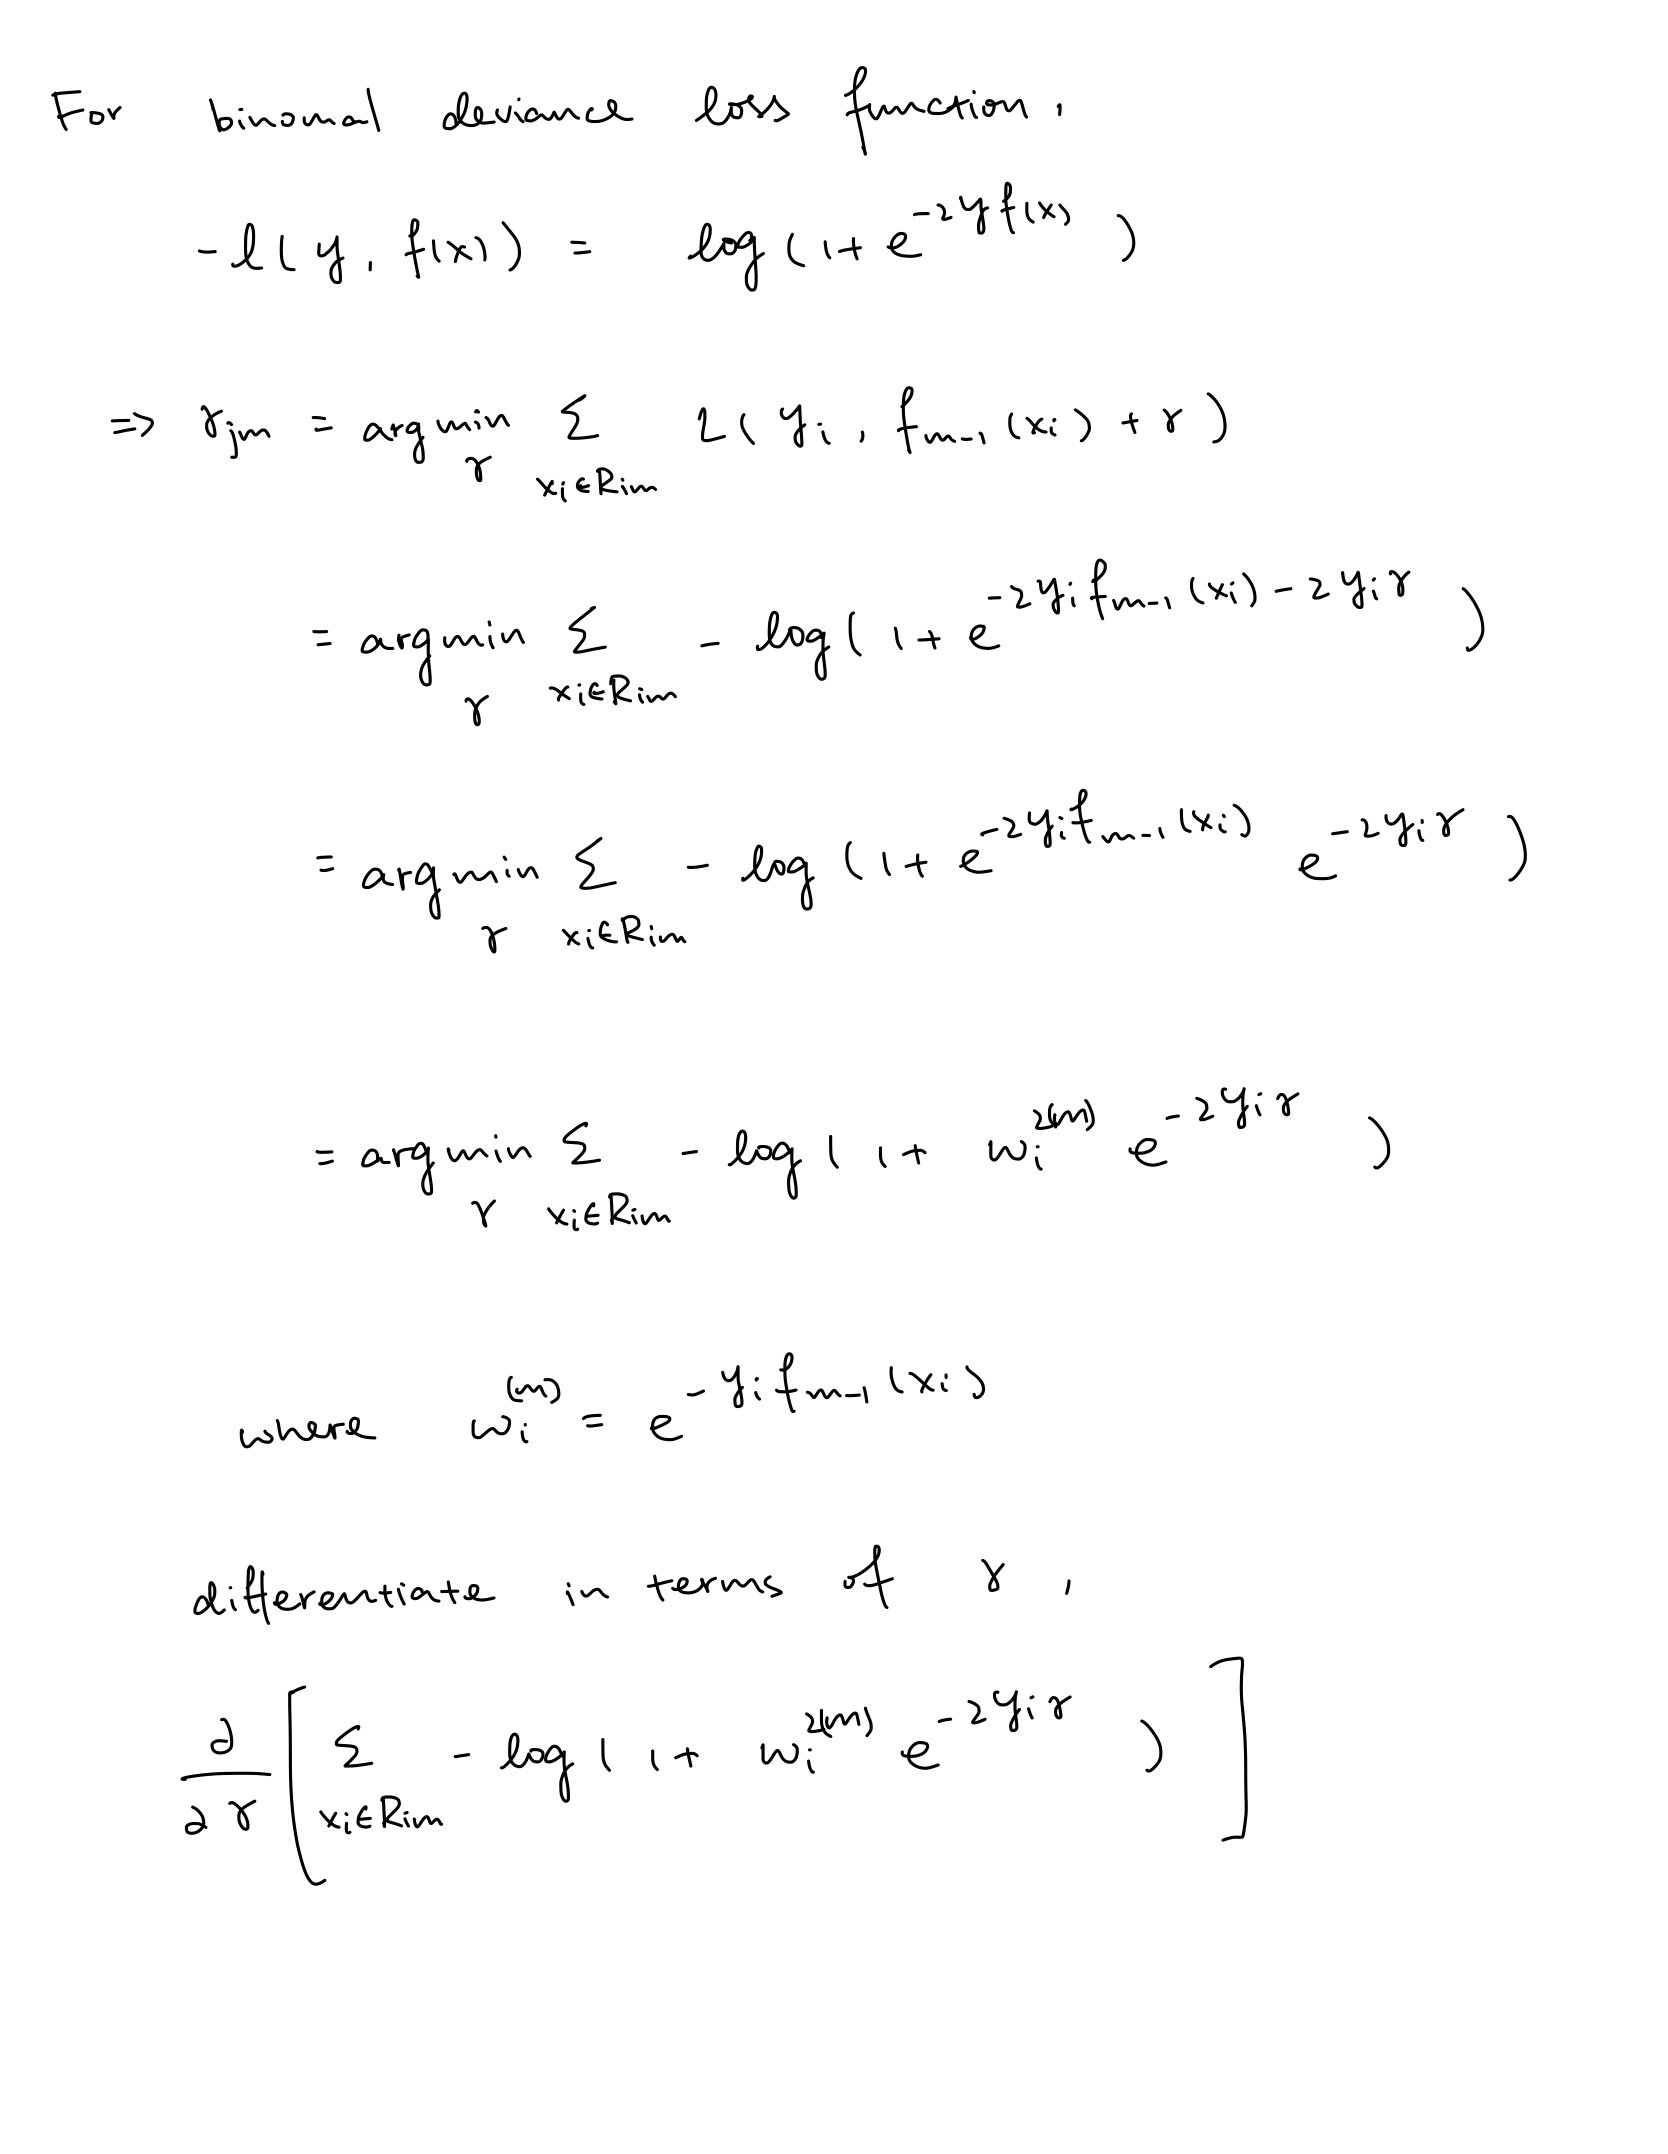 For binomal deviance loss function,
-l(y, f(x)) = log(1+e^{-2yf(x)})
=> γ_{jm} = argmin_γ Σ_{x_i∈R_{im}} L(y_i, f_{m-1}(x_i) + γ)
= argmin_γ Σ_{x_i∈R_{im}} - log(1+e^{-2y_i f_{m-1}(x_i) - 2y_i γ})
= argmin_γ Σ_{x_i∈R_{im}} - log(1+e^{-2y_i f_{m-1}(x_i)} e^{-2y_i γ})
= argmin_γ Σ_{x_i∈R_{im}} - log(1+ w_i^{2(m)} e^{-2y_i γ})
where w_i^{(m)} = e^{-y_i f_{m-1}(x_i)}
differentiate in terms of γ,
∂/∂γ [Σ_{x_i∈R_{im}} - log(1+ w_i^{2(m)} e^{-2y_i γ})]